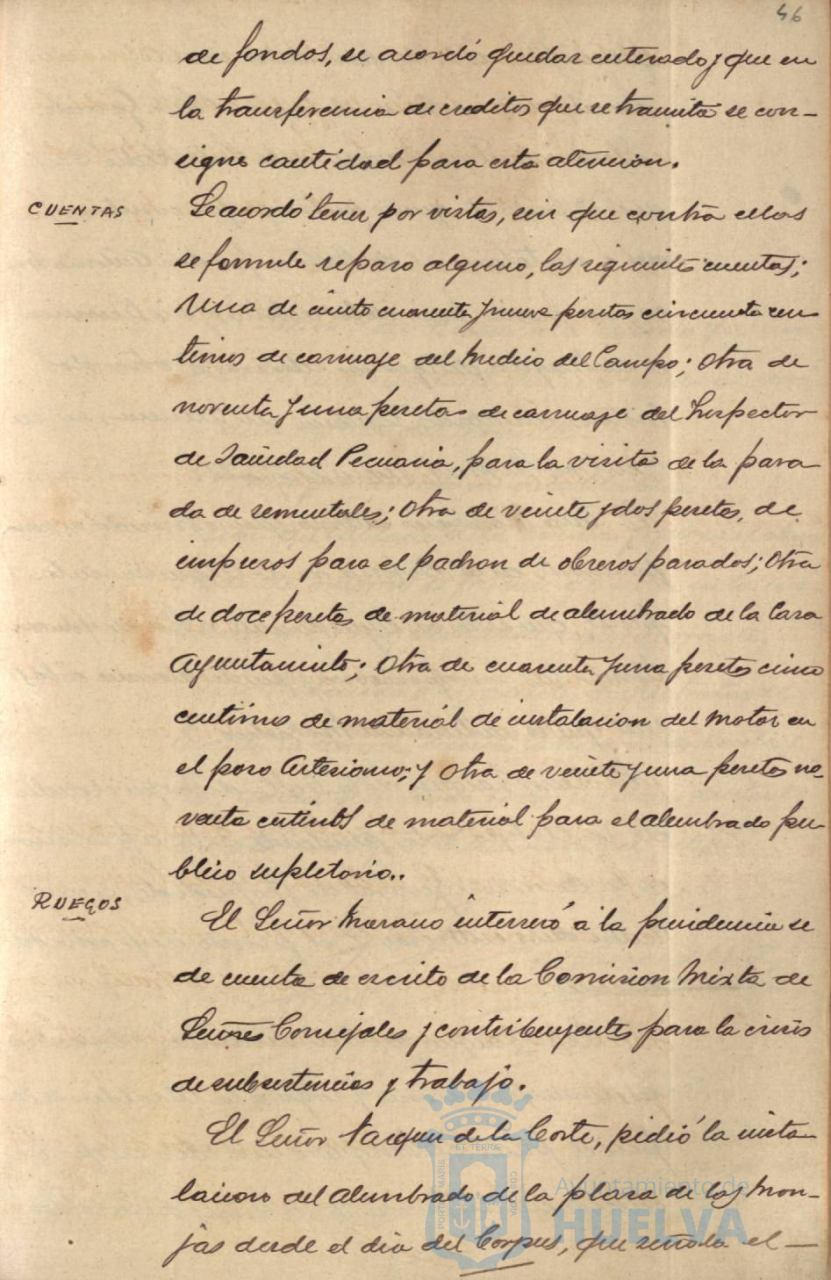 46
de fondos, se acordó quedar enterado y que en
la transferencia de creditos que se tramita se con-
signe cantidad para esta atencion.
CUENTAS
Se acordó tener por vistas, sin que contra ellas
se formule reparo alguno, las siguientes cuentas;
Una de ciento cuarenta y nueve pesetas cincuenta cen
timos de carruaje del Medico del Campo; Otra de
noventa y una pesetas de carruaje del Inspector
de Sanidad Pecuaria, para la visita de la para
da de sementales; Otra de veinte y dos pesetas, de
impresos para el padron de obreros parados; Otra
de doce pesetas de material de alumbrado de la Casa
Ayuntamiento; Otra de cuarenta y una pesetas cinco
centimos de material de instalacion del motor en
el pozo Artesiano; y Otra de veinte y una pesetas no-
venta centimos de material para el alumbrado pu-
blico supletorio..
RUEGOS
El Señor Morano interesó á la presidencia se
de cuenta de escrito de la Comision Mixta de
Señores Concejales y contribuyentes para la crisis
de subsistencias y trabajo.
El Señor Vazquez de la Corte, pidió la insta
lacion del alumbrado de la plaza de las Mon-
jas desde el dia del Corpus, que señala el —
Ayuntamiento de
HUELVA